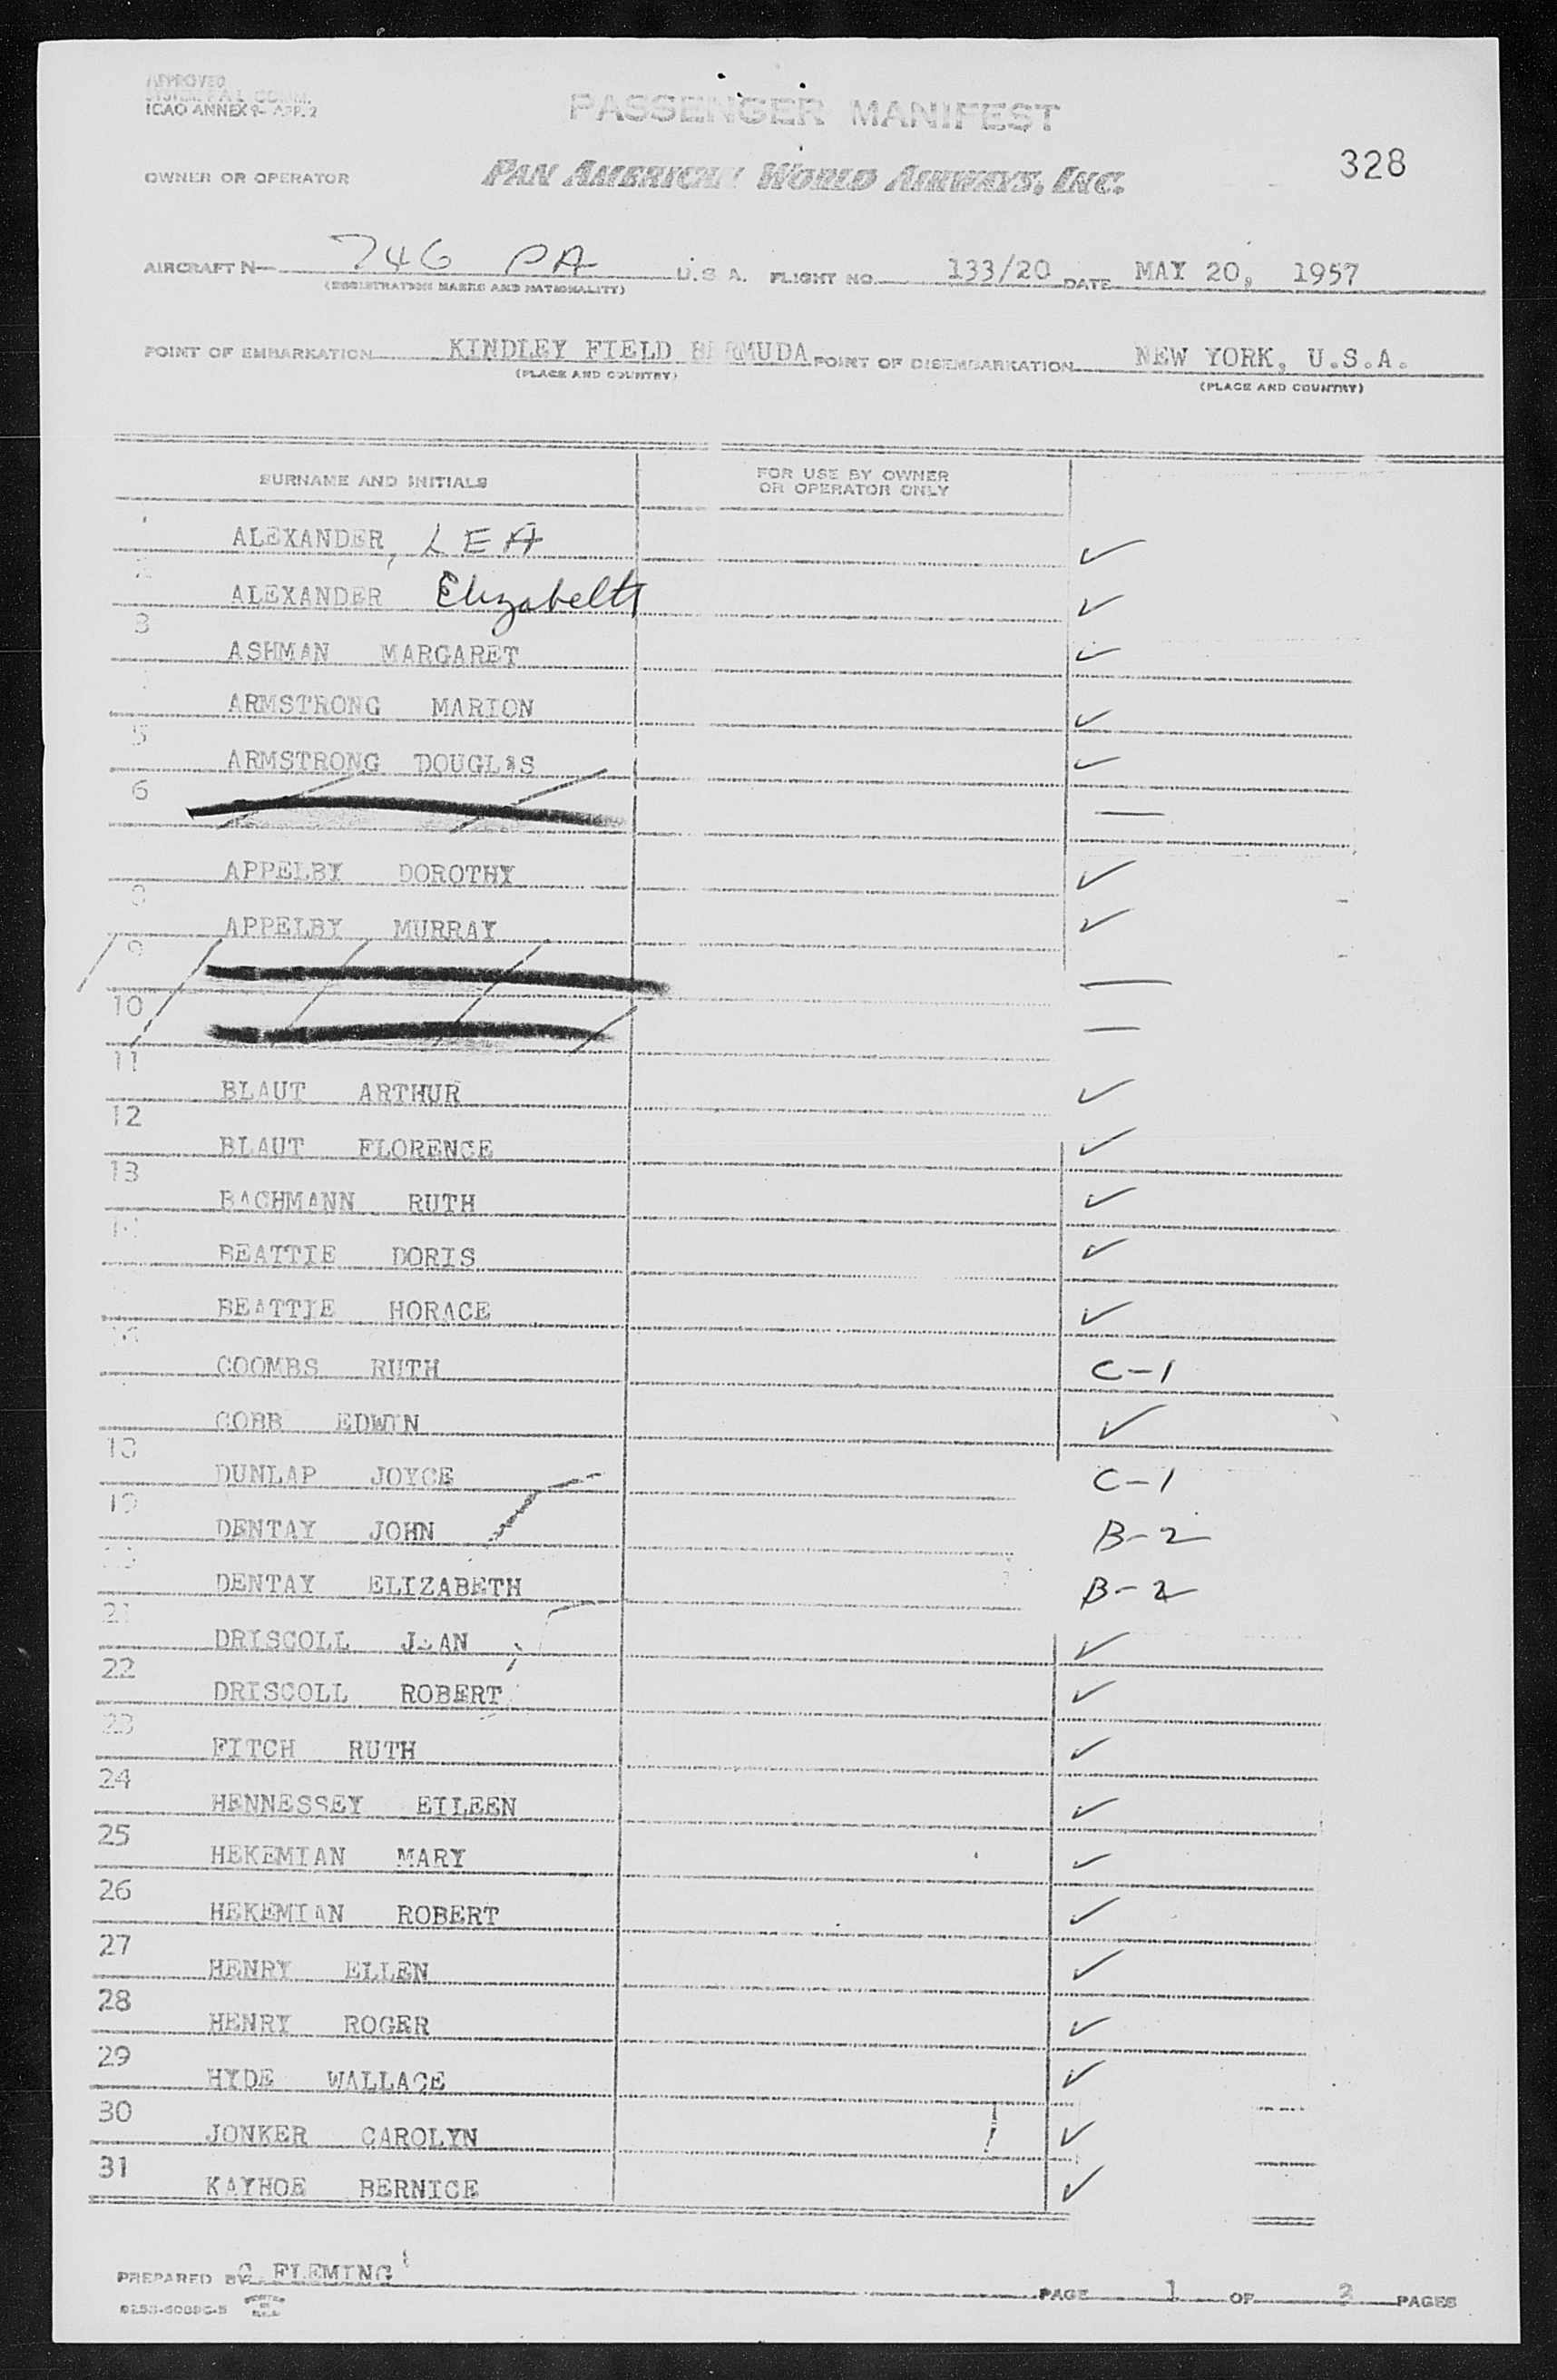 APPROVED
ICAO ANNEX 9- APP. 2
PASSENGER MANIFEST
328
OWNER OR OPERATOR PAN AMERICAN WORLD AIRWAYS, INC.
AIRCRAFT N- 746 PA U.S.A. FLIGHT NO. 133/20 DATE MAY 20, 1957
(REGISTRATION MARKS AND NATIONALITY)
POINT OF EMBARKATION KINDLEY FIELD BERMUDA POINT OF DISEMBARKATION NEW YORK, U.S.A.
(PLACE AND COUNTRY) (PLACE AND COUNTRY)
SURNAME AND INITIALS FOR USE BY OWNER
OR OPERATOR ONLY
ALEXANDER, LEA ✓
ALEXANDER Elizabeth ✓
3
ASHMAN MARGARET ✓
ARMSTRONG MARION ✓
5
ARMSTRONG DOUGLAS ✓
6
—
APPELBY DOROTHY ✓
8
APPELBY MURRAY ✓
9
—
10
—
11
BLAUT ARTHUR ✓
12
BLAUT FLORENCE ✓
13
BACHMANN RUTH ✓
BEATTIE DORIS ✓
BEATTIE HORACE ✓
COOMBS RUTH C-1
COBB EDWIN ✓
18
DUNLAP JOYCE C-1
19
DENTAY JOHN B-2
DENTAY ELIZABETH B-2
21
DRISCOLL JEAN ✓
22
DRISCOLL ROBERT ✓
23
FITCH RUTH ✓
24
HENNESSEY EILEEN ✓
25
HEKEMIAN MARY ✓
26
HEKEMIAN ROBERT ✓
27
HENRY ELLEN ✓
28
HENRY ROGER ✓
29
HYDE WALLACE ✓
30
JONKER CAROLYN ✓
31
KAYHOE BERNICE ✓
PREPARED BY G. FLEMING PAGE 1 OF 2 PAGES